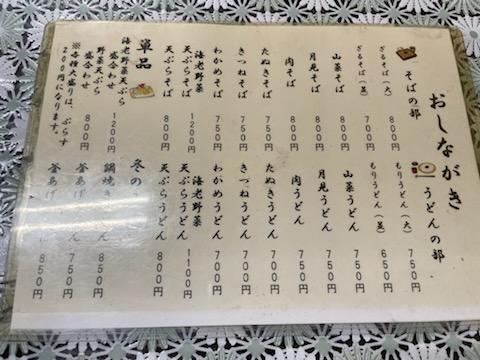 おしながき
そばの部
ざるそば(大) 800円
ざるそば(並) 700円
山菜そば 800円
月見そば 800円
肉そば 800円
たぬきそば 750円
きつねそば 750円
わかめそば 750円
海老野菜
天ぷらそば 1200円
天ぷらそば 800円
單品
海老野菜天ぷら
盛合わせ 1200円
野菜天ぷら
盛合わせ 800円
※各種大盛りは、ぷらす
200円になります。
うどんの部
もりうどん(大) 750円
もりうどん(並) 650円
山菜うどん 750円
月見うどん 750円
肉うどん 750円
たぬきうどん 700円
きつねうどん 700円
わかめうどん 700円
海老野菜
天ぷらうどん 1100円
天ぷらうどん 800円
冬の
鍋焼き 850円
釜あげ 750円
釜あげ 850円